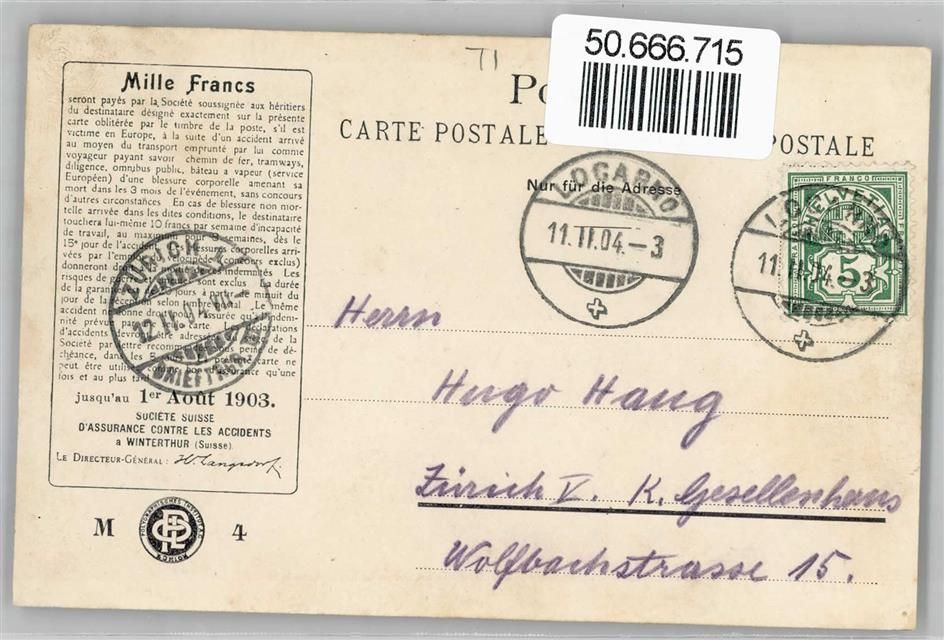 50.666.715
TI
Po
CARTE POSTALE POSTALE
Nur für die Adresse
LOCARNO
11.II.04.-3
FRANCO
HELVETIA
5
11.II.04.-3
Mille Francs
seront payés par la Société soussignée aux héritiers
du destinataire désigné exactement sur la présente
carte oblitérée par le timbre de la poste, s'il est
victime en Europe, à la suite d'un accident arrivé
au moyen du transport emprunté par lui comme
voyageur payant savoir chemin de fer, tramways,
diligence, omnibus public, bâteau a vapeur (service
Européen) d'une blessure corporelle amenant sa
mort dans les 3 mois de l'événement, sans concours
d'autres circonstances En cas de blessure non mor-
telle arrivée dans les dites conditions, le destinataire
touchera lui-même 10 francs par semaine d'incapacité
de travail, au maximum pour semaines, dès le
15e jour de l'accident blessures corporelles arri-
vées par l'emp vélocipède concours exclus)
donneront d mêmes indemnités Les
risques de guerre sont exclus La durée
de la garan jours à partir de minuit du
jour de la réception selon timbre postal Le même
accident ne donne droit assuré qu'a l'indem-
nité prévue carte Les déclarations
d'accidents devront être adressées à la
Société par lettre recomm sous peine de dé-
chéance, dans les présente carte ne
peut être utilisée comme bon d'assurance qu'une
fois et au plus tard
jusqu'au 1er Août 1903.
SOCIÉTÉ SUISSE
D'ASSURANCE CONTRE LES ACCIDENTS
a WINTERTHUR (Suisse).
LE DIRECTEUR-GÉNÉRAL: H. Langsdorf.
ZÜRICH 1
12.II.04.VII-
BRIEFTR
M 4
POLYGRAPHISCHES INSTITUT A.G.
ZÜRICH
PI
Herrn
Hugo Haug
Zürich V. K. Gesellenhaus
Wolfbachstrasse 15.